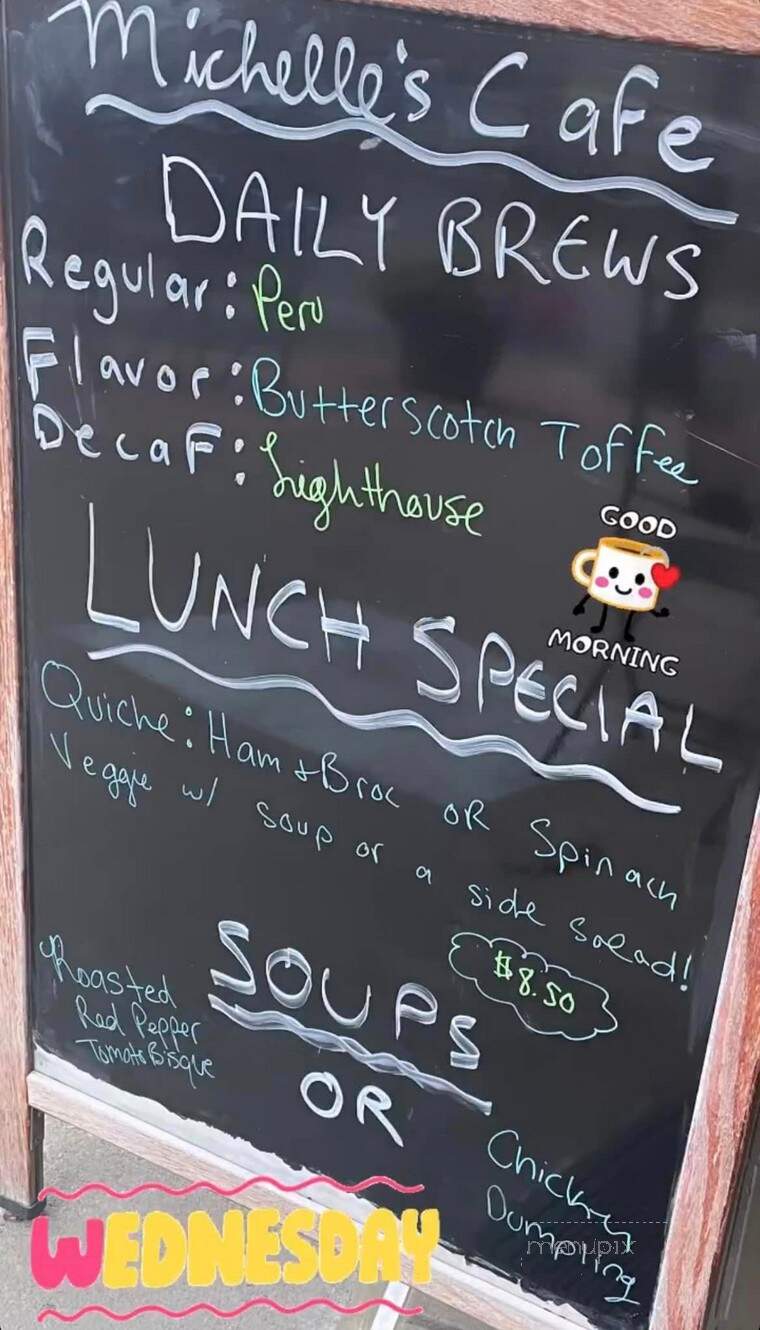 Michelle's Cafe
DAILY BREWS
Regular: Peru
Flavor: Butterscotch Toffee
Decaf: Lighthouse
GOOD
MORNING
LUNCH SPECIAL
Quiche: Ham + Broc OR Spinach
Veggie w/ soup or a side salad!
$8.50
SOUPS
Roasted
Red Pepper
Tomato Bisque
OR
Chicken
Dumpling
menupix
WEDNESDAY